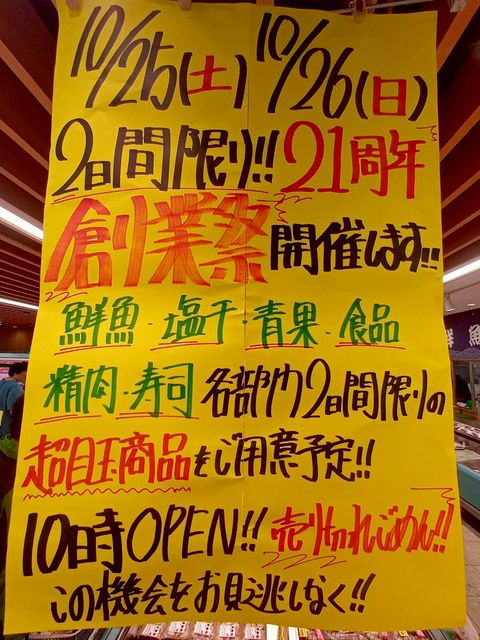 10/25(土) 10/26(日)
2日間限り!! 21周年
創業祭 開催します!!
鮮魚・塩干・青果・食品
精肉・寿司 各部門2日間限りの
超目玉商品をご用意予定!!
10時OPEN!! 売り切れごめん!!
この機会をお見逃しなく!!
鮮魚